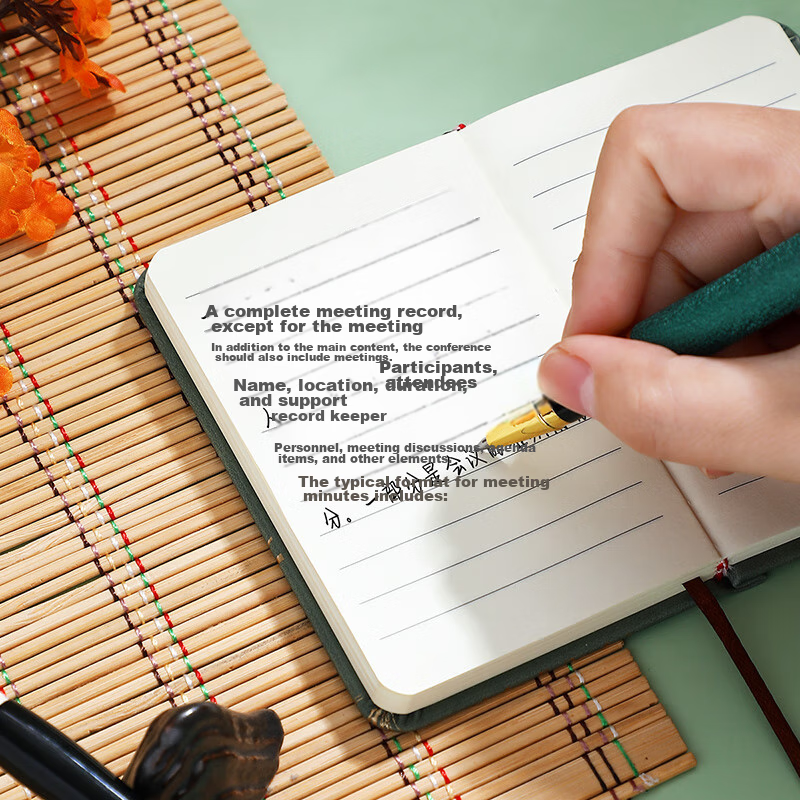 A complete meeting record,
except for the meeting
In addition to the main content, the conference
should also include meetings.
Participants,
attendees
Name, location, duration,
and support
record keeper
Personnel, meeting discussions, agenda
items, and other elements
The typical format for meeting
minutes includes:
分。一部分是会议